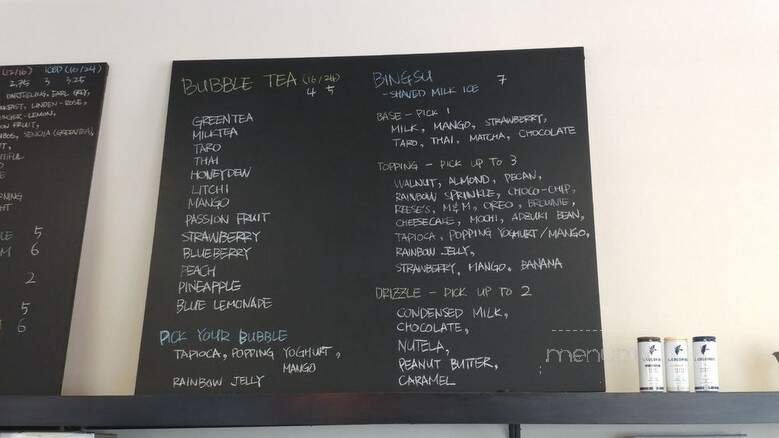 (12/16) ICED (16/24)
2.75 3 3.25
DARJEELING, EARL GREY,
LINDEN-ROSE,
GER-LEMON,
ON FRUIT,
SENCHA (GREENTEA),
5
6
2
5
6
BUBBLE TEA (16/24)
4 5
GREENTEA
MILKTEA
TARO
THAI
HONEYDEW
LITCHI
MANGO
PASSION FRUIT
STRAWBERRY
BLUEBERRY
PEACH
PINEAPPLE
BLUE LEMONADE
PICK YOUR BUBBLE
TAPIOCA, POPPING YOGHURT,
MANGO
RAINBOW JELLY
BINGSU 7
-SHAVED MILK ICE
BASE - PICK 1
MILK, MANGO, STRAWBERRY,
TARO, THAI, MATCHA, CHOCOLATE
TOPPING - PICK UP TO 3
WALNUT, ALMOND, PECAN,
RAINBOW SPRINKLE, CHOCO-CHIP,
REESE'S, M&M, OREO, BROWNIE,
CHEESECAKE, MOCHI, ADZUKI BEAN,
TAPIOCA, POPPING YOGHURT/MANGO,
RAINBOW JELLY,
STRAWBERRY, MANGO, BANANA
DRIZZLE - PICK UP TO 2
CONDENSED MILK,
CHOCOLATE,
NUTELA,
PEANUT BUTTER,
CARAMEL